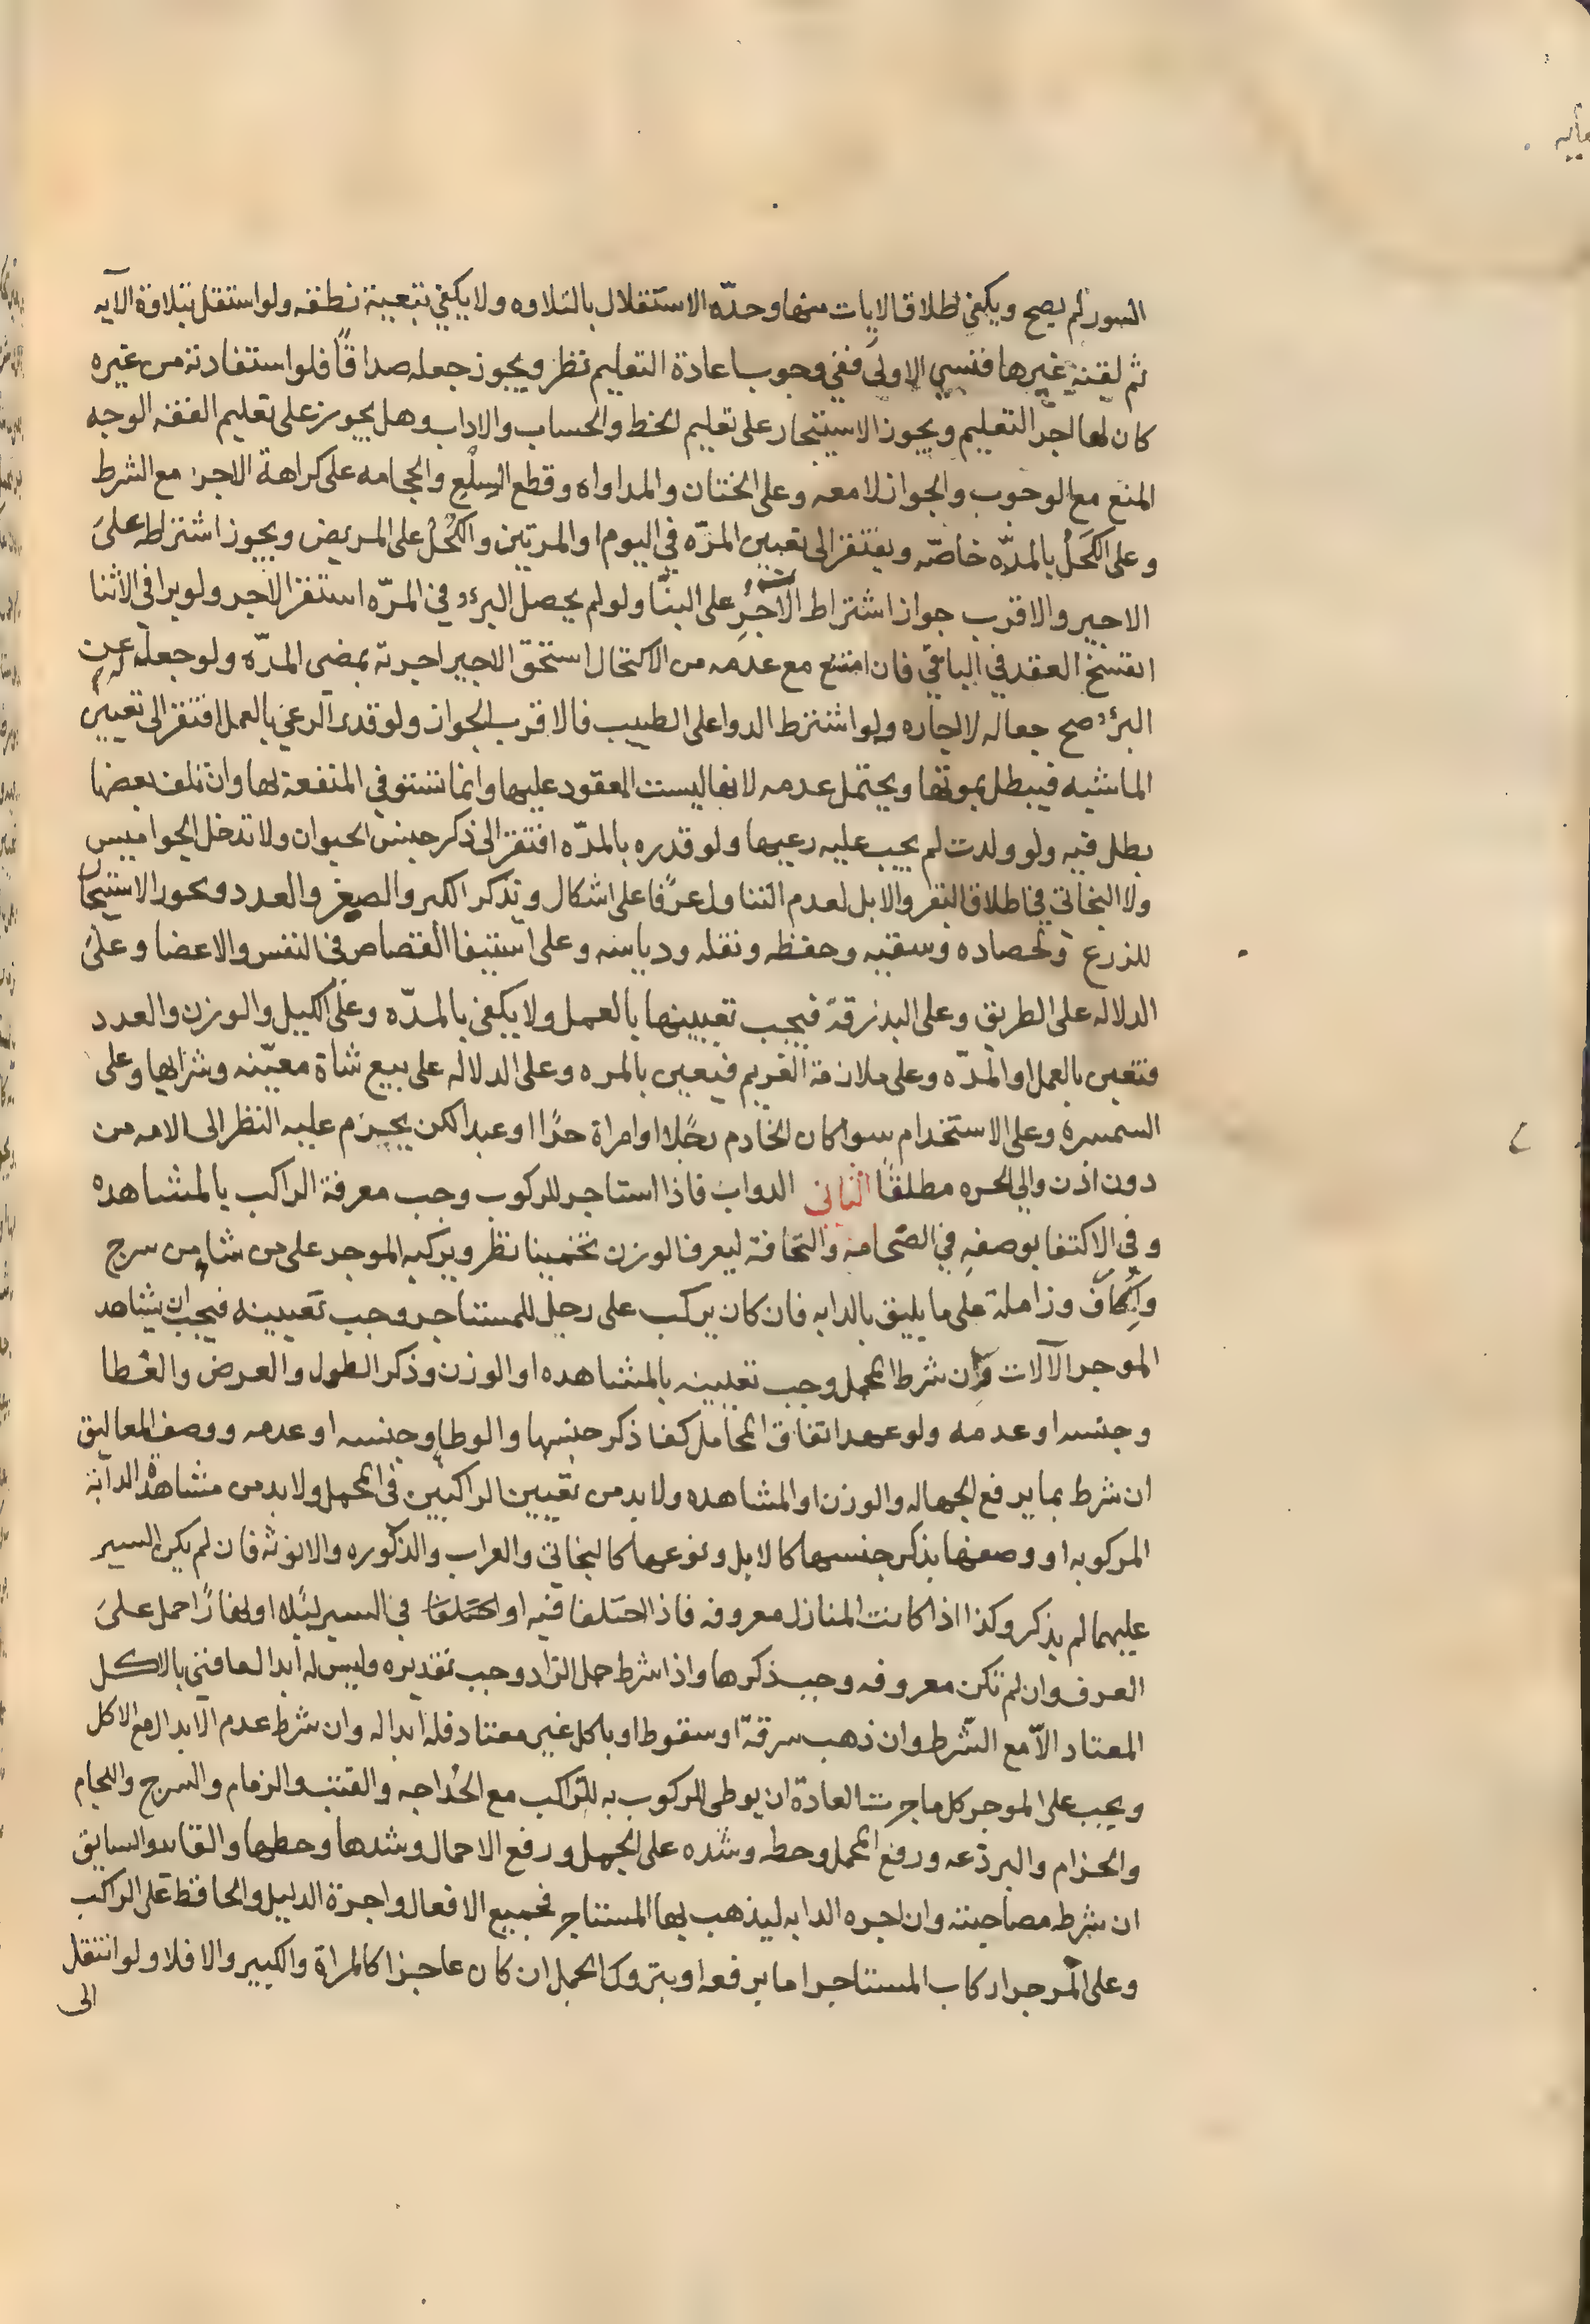 السور لم يصح ويكفي اطلاق الايات منها وحدّه الاستقلال بالتلاوه ولا يكفي تتبعية نطقه ولو استقل بتلاوة الايه
ثم لقنه غيرها فنسي الاولى ففي وجوب اعادة التعليم نظر ويجوز جعله صداقًا فلو استفادته من غيره
كان لها اجر التعليم ويجوز الاستيجار على تعليم الخط والحساب والاداب وهل يجوز على تعليم الفقه الوجه
المنع مع الوجوب والجواز لا معه وعلى الختان والمداواه وقطع السِلَع والحجامه على كراهة الاجره مع الشرط
وعلى الكَحل بالمدّه خاصّه ويفتقر الى تعيين المرّه في اليوم او المرتين والكُحل على المريض ويجوز اشتراطه على
الاجير والاقرب جواز اشتراط الآجُر على البنّا ولو لم يحصل البرء في المدّه استقر الاجر ولو برا في الاثنا
انفسخ العقد في الباقي فان امتنع مع عدمه من الاكتحال استحق الاجير اجرته بمضى المدّه ولو جعله له عن
البرء صح جعاله لا اجاره ولو اشترط الدوا على الطبيب فالاقرب الجواز ولو قدر الرعي بالعمل افتقر الى تعيين
الماشيه فيبطل بموتها ويحتمل عدمه لانها ليست المعقود عليها وانما تستوفي المنفعة بها وان تلف بعضها
بطل فيه ولو ولدت لم يجب عليه رعيها ولو قدره بالمدّه افتقر الى ذكر جنس الحيوان ولا تدخل الجواميس
ولا البخاتي في اطلاق البقر والابل لعدم التناول عرفًا على اشكال وتذكر الكبر والصغر والعدد ويجوز الاستيجا
للزرع ولحصاده وسقيه وحفظه ونقله ودياسه وعلى استيفا القصاص في النفس والاعضا وعلى
الدلاله على الطريق وعلى البذرقة فيجب تعيينها بالعمل ولا يكفي بالمدّه وعلى الكيل والوزن والعدد
فتعين بالعمل او المدّه وعلى ملازمة الغريم فيعين بالمده وعلى الدلاله على بيع شاة معيّنه وشرايها وعلى
السمسره وعلى الاستخدام سوا كان الخادم رجلًا او امراة حرًا او عبدا لكن يحرم عليه النظر الى الامه من
دون اذن والى الحره مطلقًا الثاني الدواب فاذا استاجر للركوب وجب معرفة الراكب بالمشاهده
وفي الاكتفا بوصفه في الضخامه والنحافة ليعرف الوزن تخمينا نظر ويركبه الموجر على من شا من سرج
واِكاف وزاملة على ما يليق بالدابه فان كان يركب على رحل للمستاجر وجب تعيينه فيجب ان يشاهد
الموجر الآلات وان شرط المحمل وجب تعيينه بالمشاهده او الوزن وذكر الطول والعرض والغطا
وجنسه او عدمه ولو عهد اتفاق المحامل كفا ذكر جنسها والوطا وجنسه او عدمه ووصف المعاليق
ان شرط بما يرفع الجهاله والوزن او المشاهده ولا بد من تعيين الراكبين في المحمل ولا بد من مشاهدة الدآبة
المركوبه او وصفها بذكر جنسها كالابل ونوعها كالبخاتي والعراب والذكوره والانوثه فان لم يكن السير
عليهما لم يذكر وكذا اذا كانت المنازل معروفه فاذا اختلفا فيه او اختلفا في السير ليلًا او نهارًا حمل على
العرف وان لم تكن معروفه وجب ذكرها واذا شرط حمل الزاد وجب تقديره وليس له ابدال ما فني بالاكل
المعتاد الاّ مع الشّرط وان ذهب سرقة او سقوط او باكل غير معتاد فله ابداله وان شرط عدم الابدال مع الاكل
ويجب على الموجر كل ما جرت العادة ان يوطى للركوب به للراكب مع الحُداجه والقتب والزمام والسرج واللجام
والحزام والبرذعه ورفع المحمل وحطه وشده على الجمل ورفع الاحمال وشدها وحطها والقايد والسايق
ان شرط مصاحبته وان اجره الدابه ليذهب بها المستاجر فجميع الافعال واجرة الدليل والحافظ على الراكب
وعلى الموجر اركاب المستاجر اما يرفعه او ببروك الجمل ان كان عاجزا كالمراة والكبير والا فلا ولو انتقل
الى